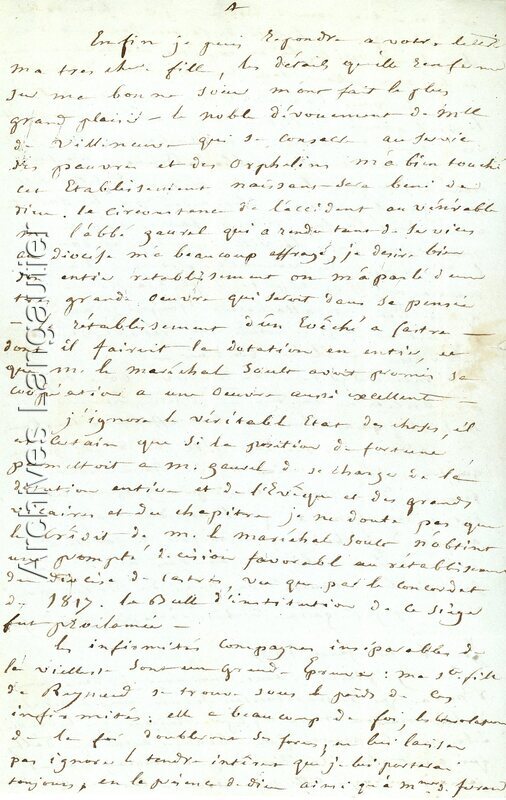 Enfin je puis repondre a votre lettre
ma tres chere fille, les détails qu'elle renferme
sur ma bonne soeur m'ont fait le plus
grand plaisir - le noble dévouement de Mlle
de Villeneuve qui se consacre au service
des pauvres et des Orphelins m'a bien touché
cet Etablissement naissant sera beni de
Dieu. la circonstance de l'accident au vénérable
l'abbé gaurel qui a rendu tant de services
au diocèse m'a beaucoup effrayé, je desire bien
entier retablissement on m'a parlé d'une
grande oeuvre qui seroit dans sa pensée
rétablissement d'un Evêché a Castre -
dont il fairoit la dotation en entier, et
que m. le maréchal Soult avoit promis sa
coopération a une oeuvre aussi excellent -
j'ignore le véritable Etat des choses, il
est certain que si la position de fortune
permettoit a m. gaurel de se charger de la
dotation entiere et de l'Evêque et des grands
vicaires et du chapitre je ne doute pas que
le Crédit de m. le maréchal Soult n'obtint
une prompte décision favorable au rétablissement
du diocèse de castres, vu que par le concordat
de 1817. la Bulle d'institution de ce siège
fut proclamée -
les infirmités compagnes inséparables de
la vieillesse sont une grande Epreuve: ma fille
de Raynaud se trouve sous le poids de ces
infirmités: elle a beaucoup de foi, les consolations
de la foi doublerons ses forces, ne lui laisser
pas ignorer le tendre intérêt que je lui porterai
toujours, en la présence de dieu ainsi qu'à mme
Archives Langautier